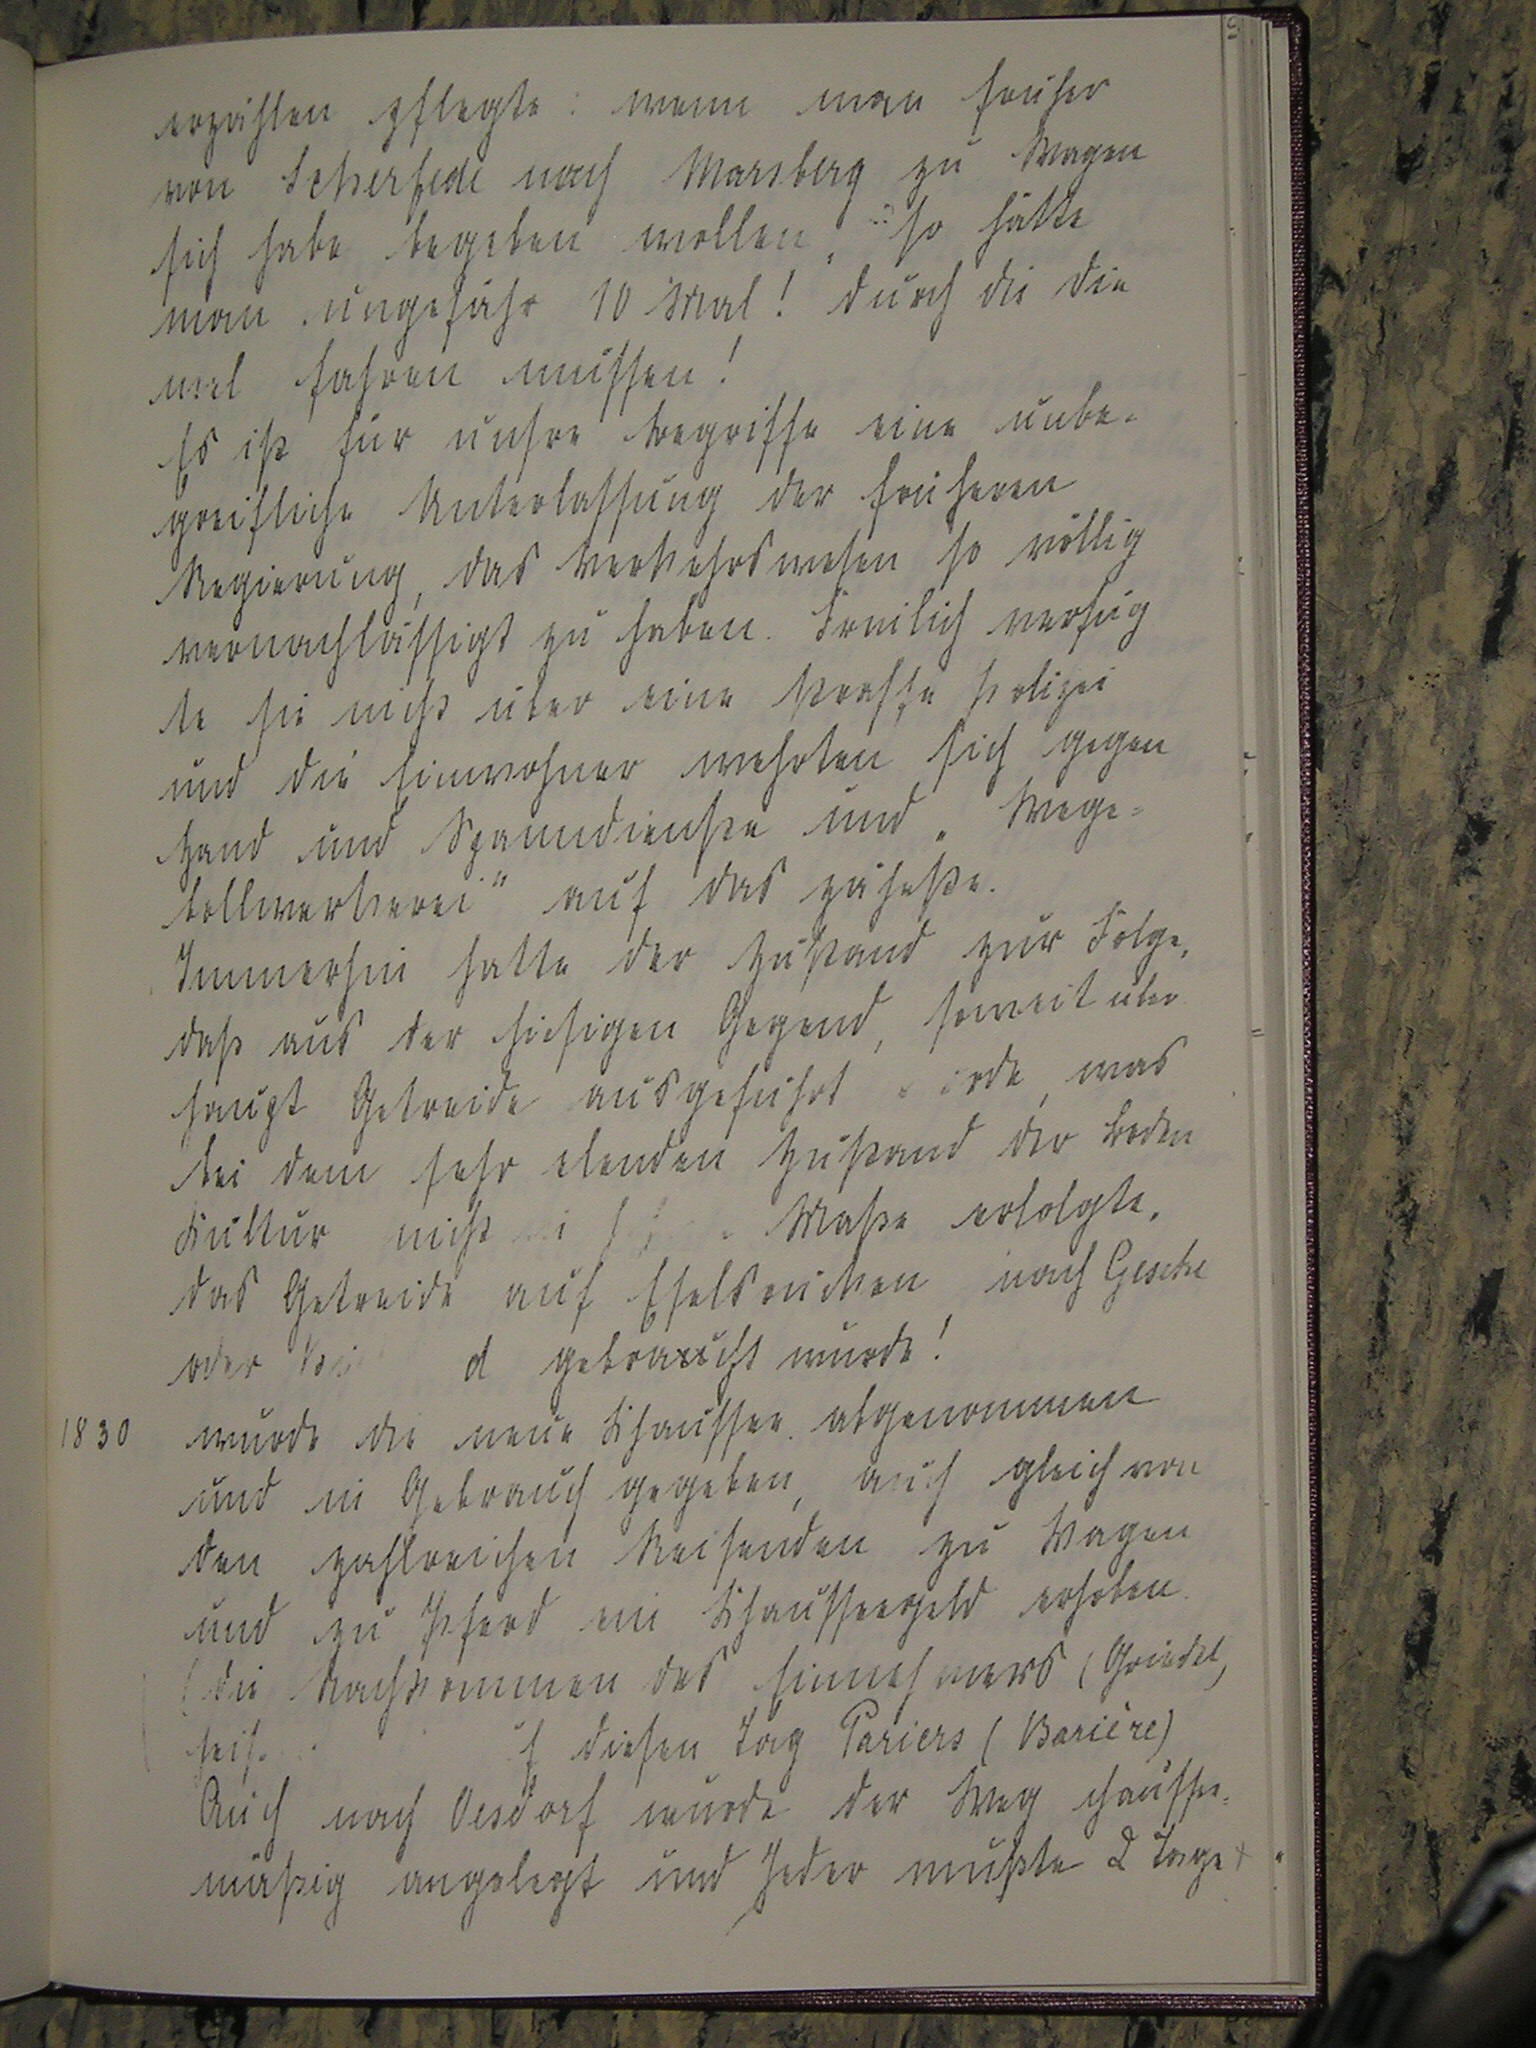 erzählen pflegte: wenn man früher
von Scherfede nach Marsberg zu Wagen
sich habe begeben wollen, so hätte
man ungefähr 10 Mal! durch die Die
mel fahren müssen!
Es ist für unsre Begriffe eine unbe-
greifliche Unterlassung der früheren
Regierung, das Verkehrswesen so völlig
vernachlässigt zu haben. Freilich verfüg
te sie nicht über eine straffe Polizei
und die Einwohner wehrten sich gegen
Hand und Spanndienste und „Wege-
bollwerkerei" auf das zäheste.
Immerhin hatte der Zustand zur Folge,
daß aus der hiesigen Gegend, soweit über
haupt Getreide ausgeführt wurde, was
bei dem sehr elenden Zustand der Boden
Kultur nicht Maße erfolgte,
das Getreide auf Eselsrücken nach Geseke
oder gebraucht wurde!
1830 wurde die neue Chaussee abgenommen
und in Gebrauch gegeben, auch gleich von
den zahlreichen Reisenden zu Wagen
und zu Pferd ein Chausseegeld erhoben.
(die Nachkommen des Einnehmers (Griedel,
diesen Tag Pariers (Barière)
Auch nach Oesdorf wurde der Weg chaussee-
mäßig angelegt und Jeder mußte 2 Tage +